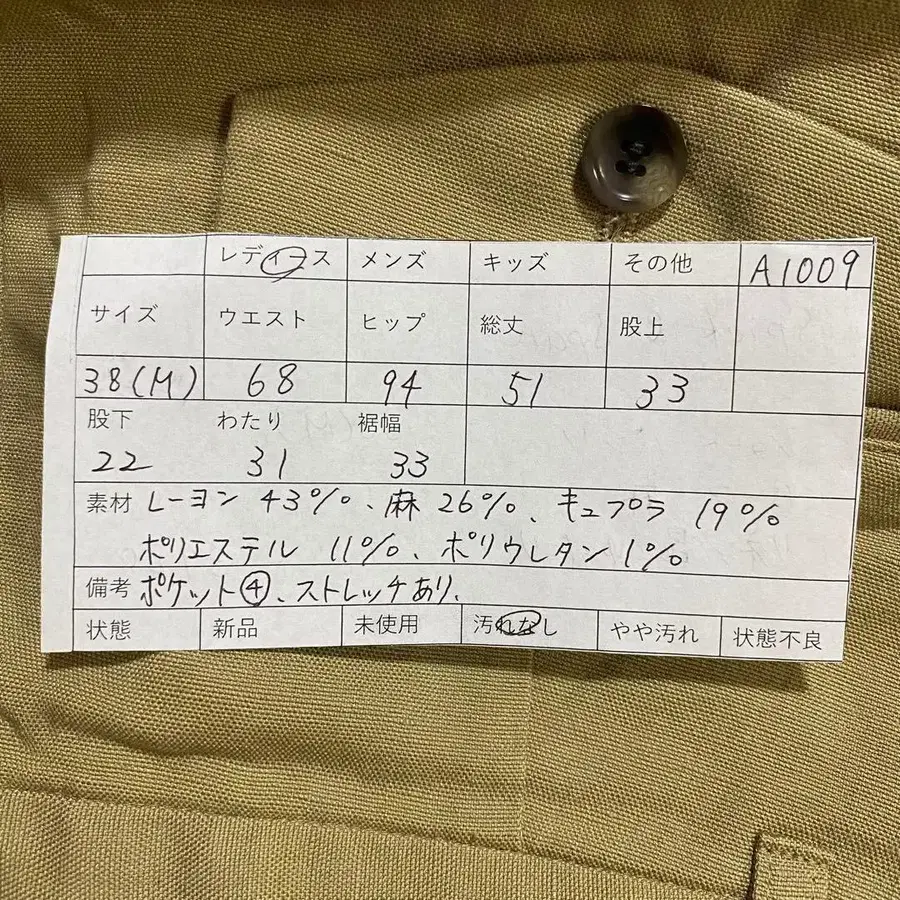 レディース メンズ キッズ その他 A1009
サイズ ウエスト ヒップ 総丈 股上
38(M) 68 94 51 33
股下 わたり 裾幅
22 31 33
素材 レーヨン 43%、麻 26%、キュプラ 19%
ポリエステル 11%、ポリウレタン 1%
備考 ポケット④、ストレッチあり.
状態 新品 未使用 汚れなし やや汚れ 状態不良